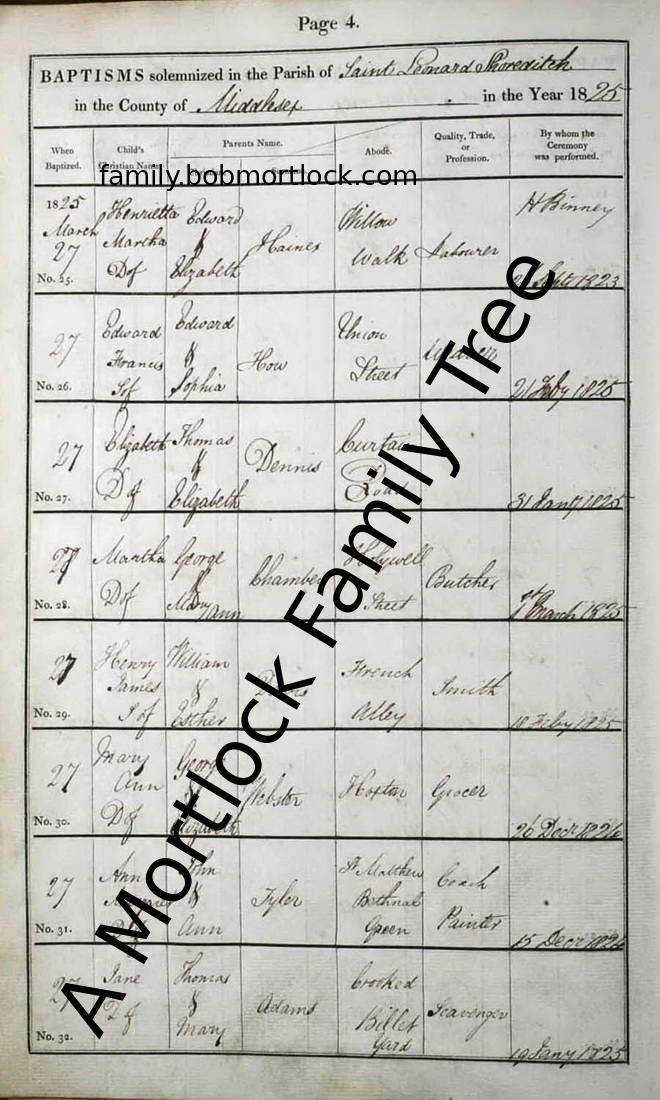 Page 4.
BAPTISMS solemnized in the Parish of Saint Leonard Shoreditch
in the County of Middlesex in the Year 1825
When Baptized.
Child's Christian Name.
Parents Name.
Abode.
Quality, Trade, or Profession.
By whom the Ceremony was performed.
family.bobmortlock.com
1825
March
27
No. 25.
Henrietta
Martha
D of
Edward
&
Elizabeth
Haines
Willow
Walk
Labourer
H Binney
1823
27
No. 26.
Edward
Francis
S of
Edward
&
Sophia
How
Union
Street
21 Feby 1825
27
No. 27.
Elizabeth
D of
Thomas
&
Elizabeth
Dennis
Curtain
Road
31 Jany 1825
27
No. 28.
Martha
D of
George
&
Mary Ann
Chamber
Holywell
Street
Butcher
1st March 1825
27
No. 29.
Henry
James
S of
William
&
Esther
French
Alley
Smith
18 Feby 1825
27
No. 30.
Mary
Ann
D of
George
&
Elizabeth
Webster
Hoxton
Grocer
26 Decr 1824
27
No. 31.
Ann
John
&
Ann
Tyler
St Matthew
Bethnal
Green
Coach
Painter
15 Decr 1824
27
No. 32.
Jane
D of
Thomas
&
Mary
Adams
Crooked
Billet
Yard
Scavenger
19 Jany 1825
A Mortlock Family Tree